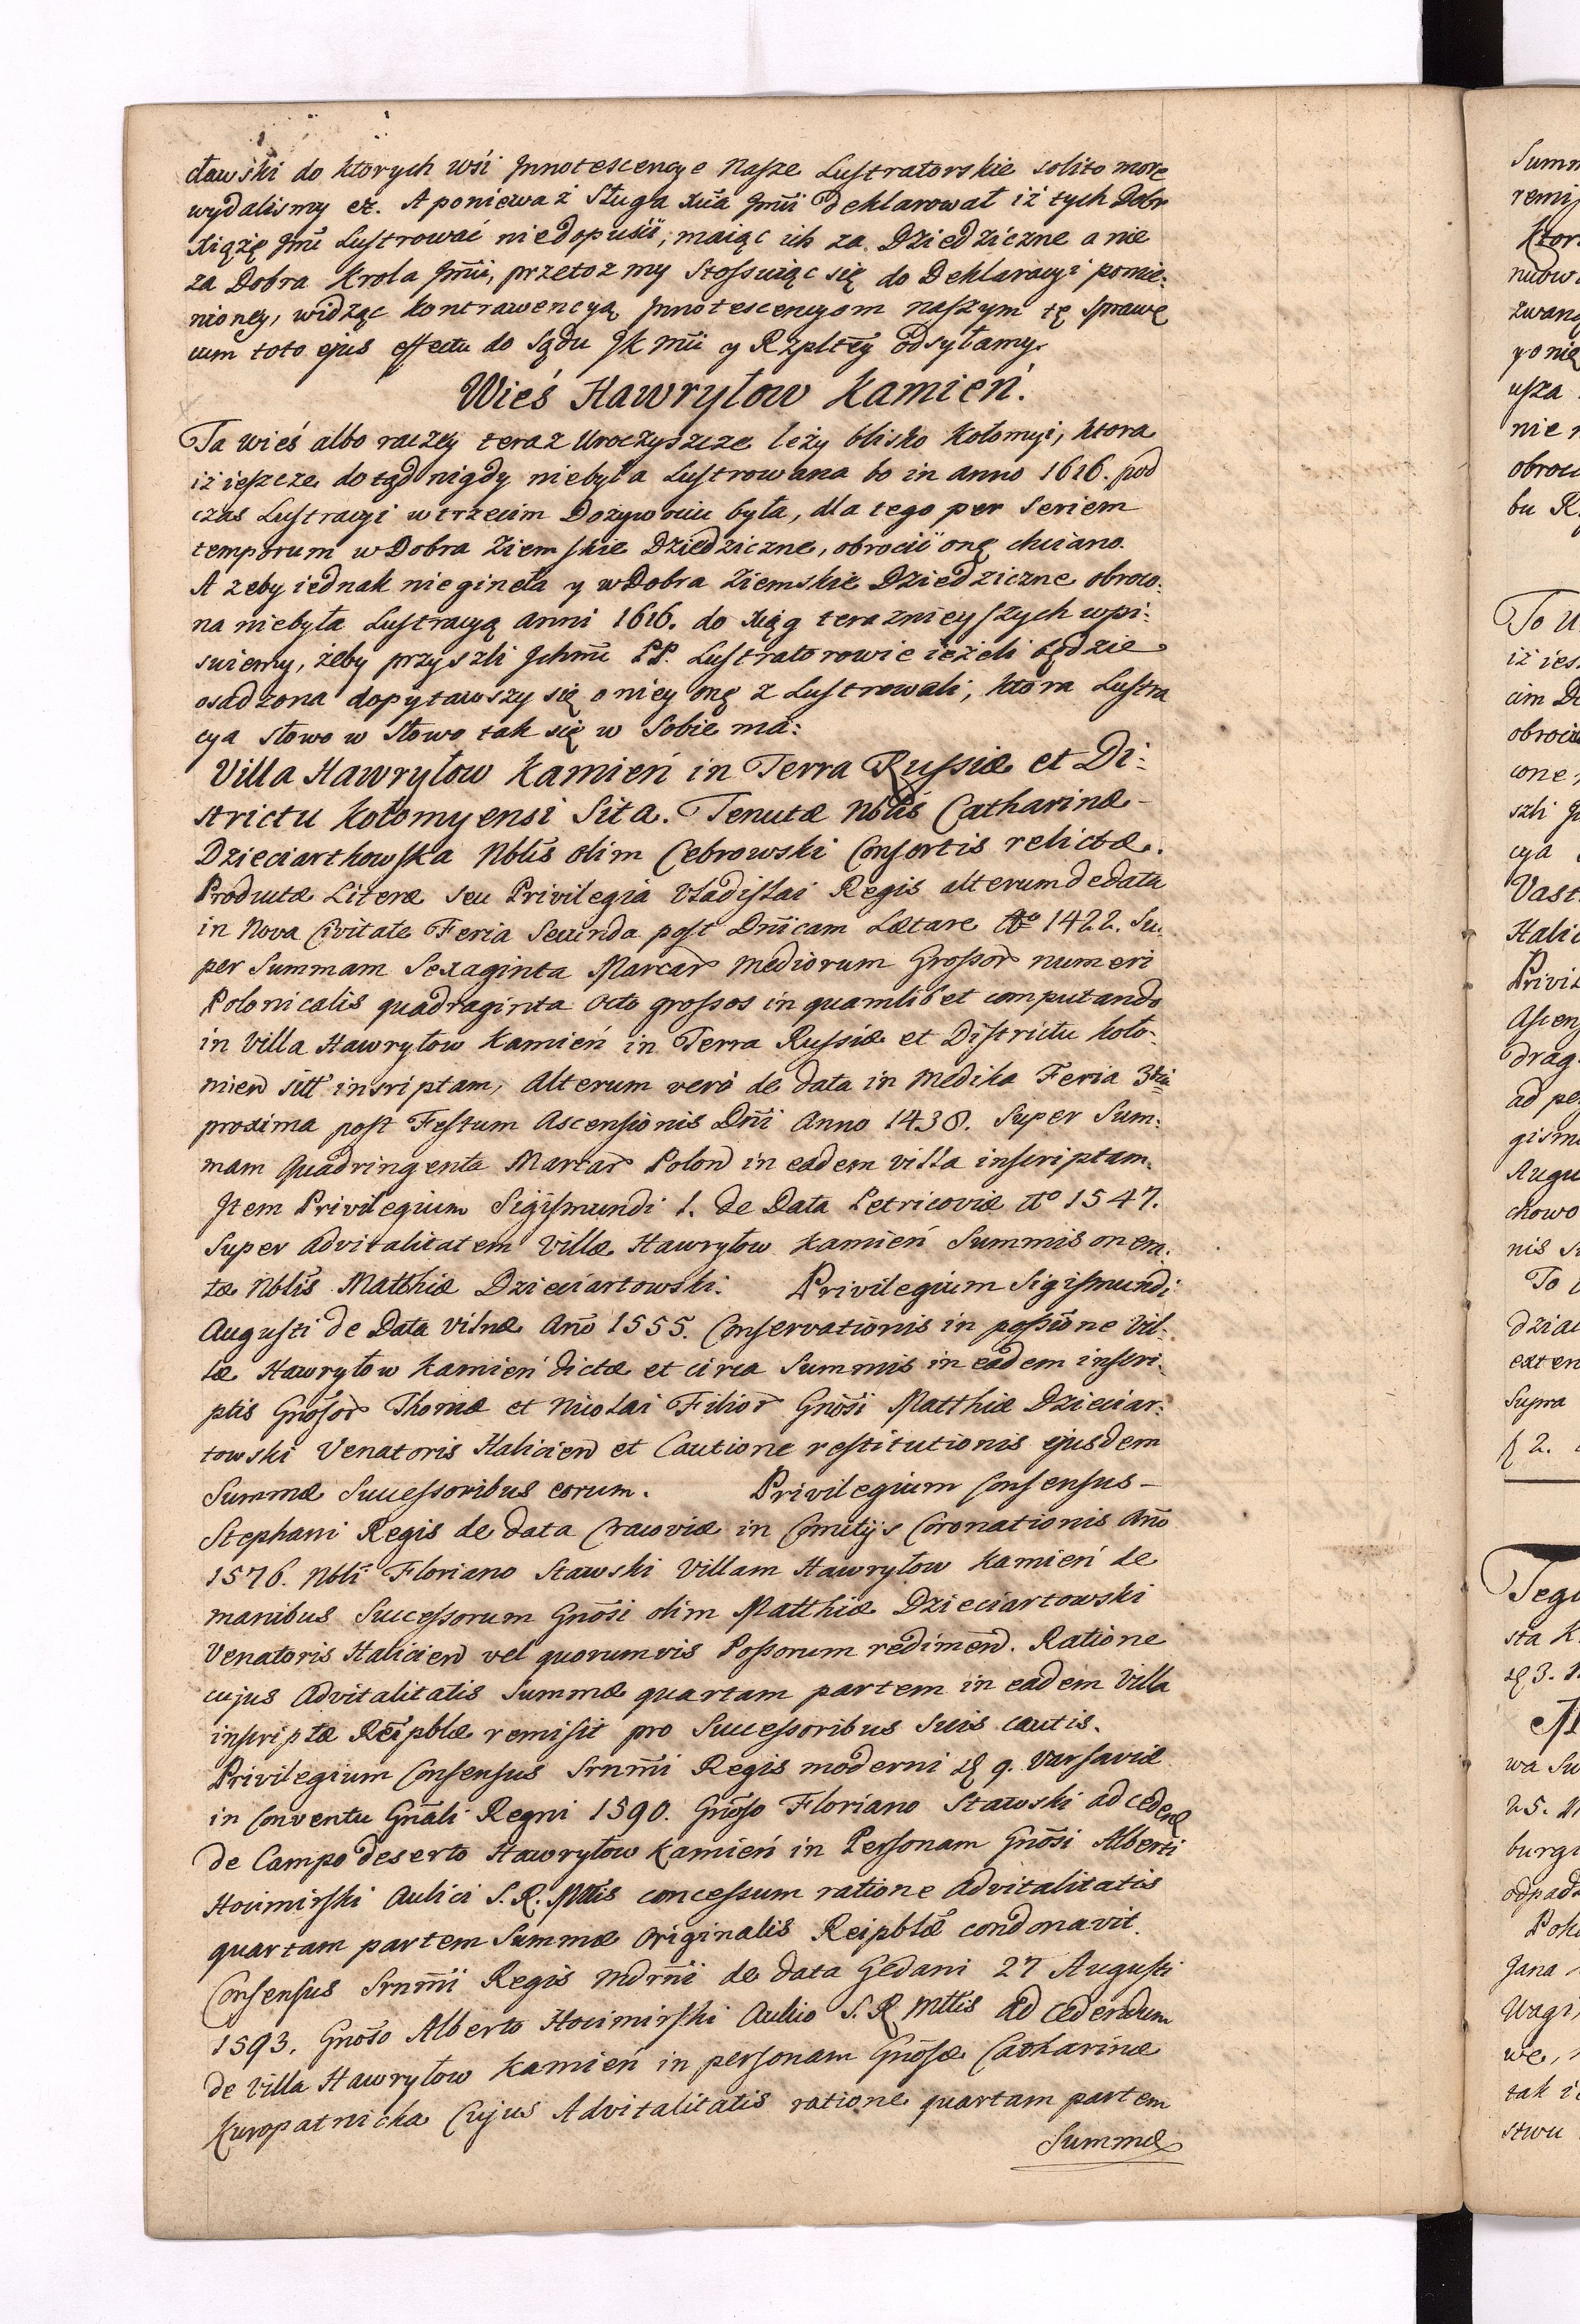 cławski do ktorych wśi Jnnotescencye Nasze Lustratorskie solito more
wydalismy etc. A ponieważ Sługa Xcia Jmci Deklarował iż tych Dobr
Xiążę Jmć Lustrować niedopuści, maiąc ich za Dziedziczne a nie
za Dobra Krola Jmci, przetoz my Stosuiąc się do Deklaracyi pomie:
nioney, widząc kontrawencyą Jnnotescencyom naszym tę sprawę
cum toto ejus effectu do Sądu JK Mci y Rzpltey odsyłamy.
Wieś Hawryłow Kamień.
Ta wieś albo raczey teraz Uroczyszcze leży blisko Kołomyi, ktora
iż ieszcze dotąd nigdy niebyła Lustrowana bo in anno 1616. pod
czas Lustracyi w trzecim Dozywociu była, dla tego per Seriem
temporum w Dobra Ziemskie Dziedziczne, obrocić onę chciano.
A zeby iednak nie gineła y w Dobra Ziemskie Dziedziczne obroco:
na niebyła Lustracyą anni 1616. do Xiąg teraznieyszych wpi:
suiemy, żeby przyszli Jchmć PP. Lustratorowie ieżeli będzie
osadzona dopytawszy się o niey onę z Lustrowali, ktora Lustra
cya słowo w słowo tak się w Sobie ma:
Villa Hawryłow Kamień in Terra Russiæ et Di:
strictu Kołomyensi Sita. Tenutæ Nblis Catharinæ –
Dzieciarthowska Nblis olim Cebrowski Consortis relictæ.
Productæ Literæ seu Privilegia Vladislai Regis alterum de data
in Nova Civitate Feria Secunda post Dnicam Lætare Ao 1422. Su:
per Summam Sexaginta Marcar Mediorum Grossor numeri
Polonicalis quadraginta octo grossos in quamlibet computando
in Villa Hawryłow Kamień in Terra Russiæ et Districtu Koło:
mien sitt inscriptam, Alterum verò de data in Medika Feria 3tia
proxima post Festum Ascensionis Dni Anno 1438. Super Sum:
mam Quadringenta Marcar Polon in eadem villa inscriptam.
Jtem Privilegium Sigismundi 1. de Data Petricoviæ Ao 1547.
super Advitalitatem Villæ Hawryłow Kamień Summis onera:
tæ Nblis Matthiæ Dzieciartowski. Privilegium Sigismundi
Augusti de Data Vilnæ Ano 1555. Conservationis in possione Vil:
læ Hawryłow Kamień dictæ et circa Summis in eadem inscri:
ptis Gnosor Thomæ et Nicolai Filior Gnosi Matthiæ Dzieciar:
towski Venatoris Halicien et Cautione restitutionis ejusdem
Summæ Successoribus eorum. Privilegium Consensus –
Stephani Regis de data Cracoviæ in Comitijs Coronationis Ano
1576. Nbli Floriano Stawski Villam Hawryłow Kamień de
manibus Successorum Gnosi olim Matthiæ Dzieciartowski
Venatoris Halicien vel quorumvis Possorum redimend. Ratione
cujus Advitalitatis Summæ quartam partem in eadem Villa
inscriptæ Reipblæ remisit pro Successoribus Suis cautis.
Privilegium Consensus Srnmi Regis moderni d 9. Varsaviæ
in Conventu Gnali Regni 1590. Gnoso Floriano Stawski ad ceden
de Campo deserto Hawryłow Kamień in Personam Gnosi Alberti
Hocimirski Aulici S. R. Mttis concessum ratione Advitalitatis
quartam partem Summæ Originalis Reipblæ condonavit.
Consensus Srnmi Regis Mdrni de data Gedani 27 Augusti
1593. Gnoso Alberto Hocimirski Aulico S. R Mttis ad cedendum
de Villa Hawryłow Kamień in personam Gnosæ Catharinæ
Kuropatnicka Cujus Advitalitatis ratione quartam partem
Summæ